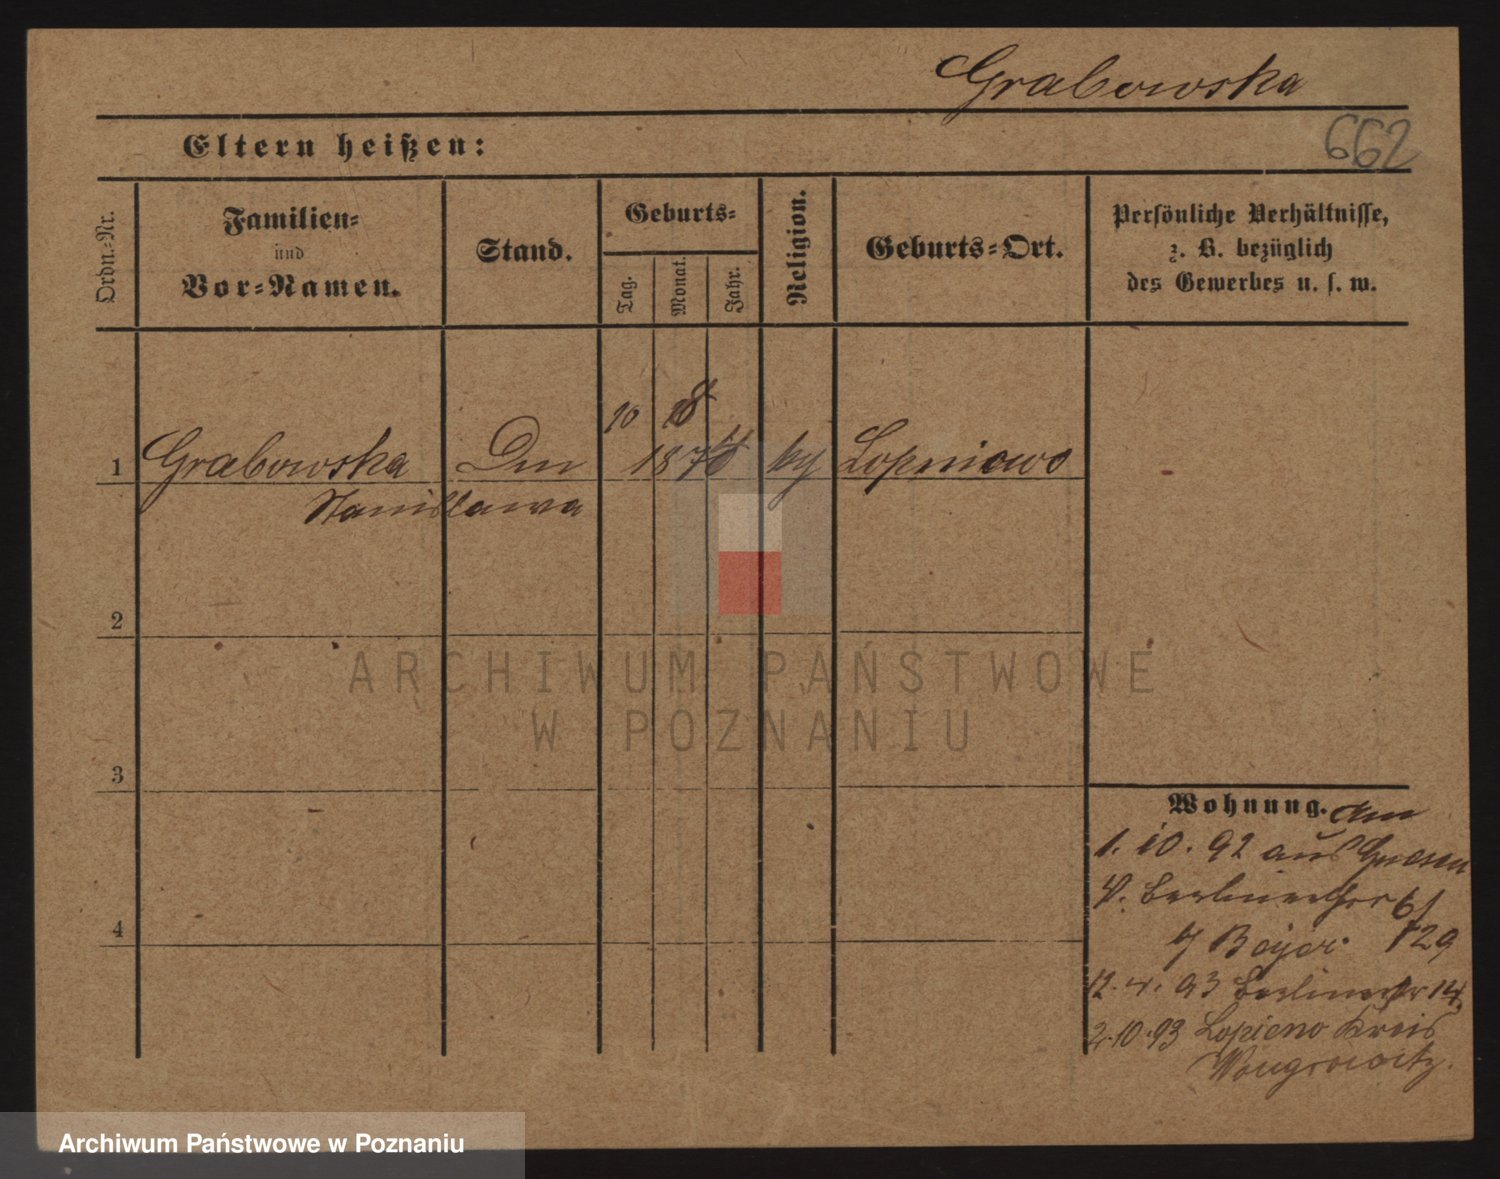 Grabowska
662
Eltern heißen:
Ordn.-Nr.
Familien-
und
Vor-Namen.
Stand.
Geburts-
Tag.
Monat.
Jahr.
Religion.
Geburts-Ort.
Persönliche Verhältnisse,
z. B. bezüglich
des Gewerbes u. s. w.
10
1 Grabowska 187 Lopniowo
Stanislawa
2
3
4
Wohnung. Am
1. 10. 92 aus Gnesen
Berlinerstr 61
Beyer 29
12. 4. 93 Berlinerstr 14,
2.10.93 Lopieno Kreis
Wongrowitz.
ARCHIWUM PAŃSTWOWE
W POZNANIU
Archiwum Państwowe w Poznaniu